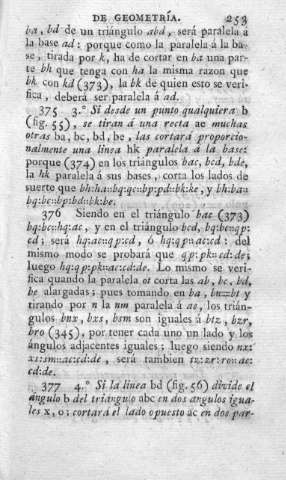 DE GEOMETRÍA. 253
ba, bd de un triángulo abd, será paralela á
la base ad: porque como la paralela á la ba-
se, tirada por k, ha de cortar en ba una par-
te bh que tenga con ha la misma razon que
bk con kd (373), la bk de quien esto se veri-
fica, deberá ser paralela á ad.
375 3.º Si desde un punto qualquiera b
(fig. 55), se tiran á una recta ae muchas
otras ba, bc, bd, be, las cortará proporcio-
nalmente una linea hk paralela á la base:
porque (374) en los triángulos bac, bcd, bde,
la hk paralela á sus bases, corta los lados de
suerte que bh:ha::bq:qc::bp:pd::bk:ke, y bh:ba::
bq:bc::bp:bd::bk:be.
376 Siendo en el triángulo bac (373)
bq:bc::hq:ac, y en el triángulo bcd, bq:bc::qp:
cd; será hq:ac::qp:cd, ó hq:qp::ac:cd: del
mismo modo se probará que qp:pk::cd:de;
luego hq:qp:pk::ac:cd:de. Lo mismo se veri-
fica quando la paralela ot corta las ab, bc, bd,
be alargadas; pues tomando en ba, bn=bt y
tirando por n la nm paralela á ae, los trián-
gulos bnx, bxs, bsm son iguales á btz, bzr,
bro (345), por tener cada uno un lado y los
ángulos adjacentes iguales; luego siendo nx:
xs:sm::ac:cd:de, será tambien tz:zr:ro::ac:
cd:de.
377 4.º Si la linea bd (fig. 56) divide el
ángulo b del triángulo abc en dos angulos igua-
les x, o; cortará el lado opuesto ac en dos par-